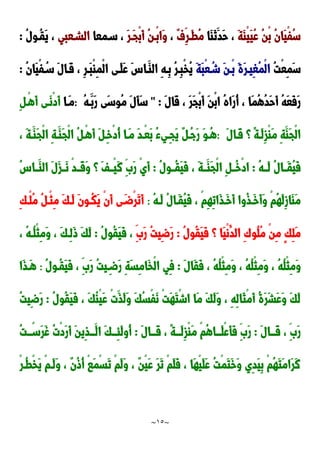 سُفْيَانُ بْنُ عُيَيْنَةَ ، حَدَّثَنَا مُطَرِّفٌ ، وَابْنُ أَبْجَرَ ، سمعا الشعبي ، يَقُولُ :
سَمِعْتُ الْمُغِيرَةَ بْنَ شُعْبَةَ يُخْبِرُ بِهِ النَّاسَ عَلَى الْمِنْبَرِ ، قَالَ سُفْيَانُ :
رَفَعَهُ أَحَدُهُمَا ، أُرَاهُ ابْنَ أَبْجَرَ ، قَالَ : " سَأَلَ مُوسَى رَبَّهُ : مَا أَدْنَى أَهْلِ
الْجَنَّةِ مَنْزِلَةً ؟ قَالَ : هُوَ رَجُلٌ يَجِيءُ بَعْدَ مَا أُدْخِلَ أَهْلُ الْجَنَّةِ الْجَنَّةَ ،
فَيُقَالُ لَهُ : ادْخُلِ الْجَنَّةَ ، فَيَقُولُ : أَيْ رَبِّ كَيْفَ ؟ وَقَدْ نَزَلَ النَّاسُ
مَنَازِلَهُمْ وَأَخَذُوا أَخَذَاتِهِمْ ، فَيُقَالُ لَهُ : أَتَرْضَى أَنْ يَكُونَ لَكَ مِثْلُ مُلْكِ
مَلِكٍ مِنْ مُلُوكِ الدُّنْيَا ؟ فَيَقُولُ : رَضِيتُ رَبِّ ، فَيَقُولُ : لَكَ ذَلِكَ ، وَمِثْلُهُ ،
وَمِثْلُهُ ، وَمِثْلُهُ ، وَمِثْلُهُ ، فَقَالَ فِي الْخَامِسَةِ : رَضِيتُ رَبِّ ، فَيَقُولُ : هَذَا
لَكَ وَعَشَرَةُ أَمْثَالِهِ ، وَلَكَ مَا اشْتَهَتْ نَفْسُكَ وَلَذَّتْ عَيْنُكَ ، فَيَقُولُ : رَضِيتُ
رَبِّ ، قَالَ : رَبِّ فَأَعْلَاهُمْ مَنْزِلَةً ، قَالَ : أُولَئِكَ الَّذِينَ أَرَدْتُ غَرَسْتُ
كَرَامَتَهُمْ بِيَدِي وَخَتَمْتُ عَلَيْهَا ، فَلَمْ تَرَ عَيْنٌ ، وَلَمْ تَسْمَعْ أُذُنٌ ، وَلَمْ يَخْطُرْ
~١٥~